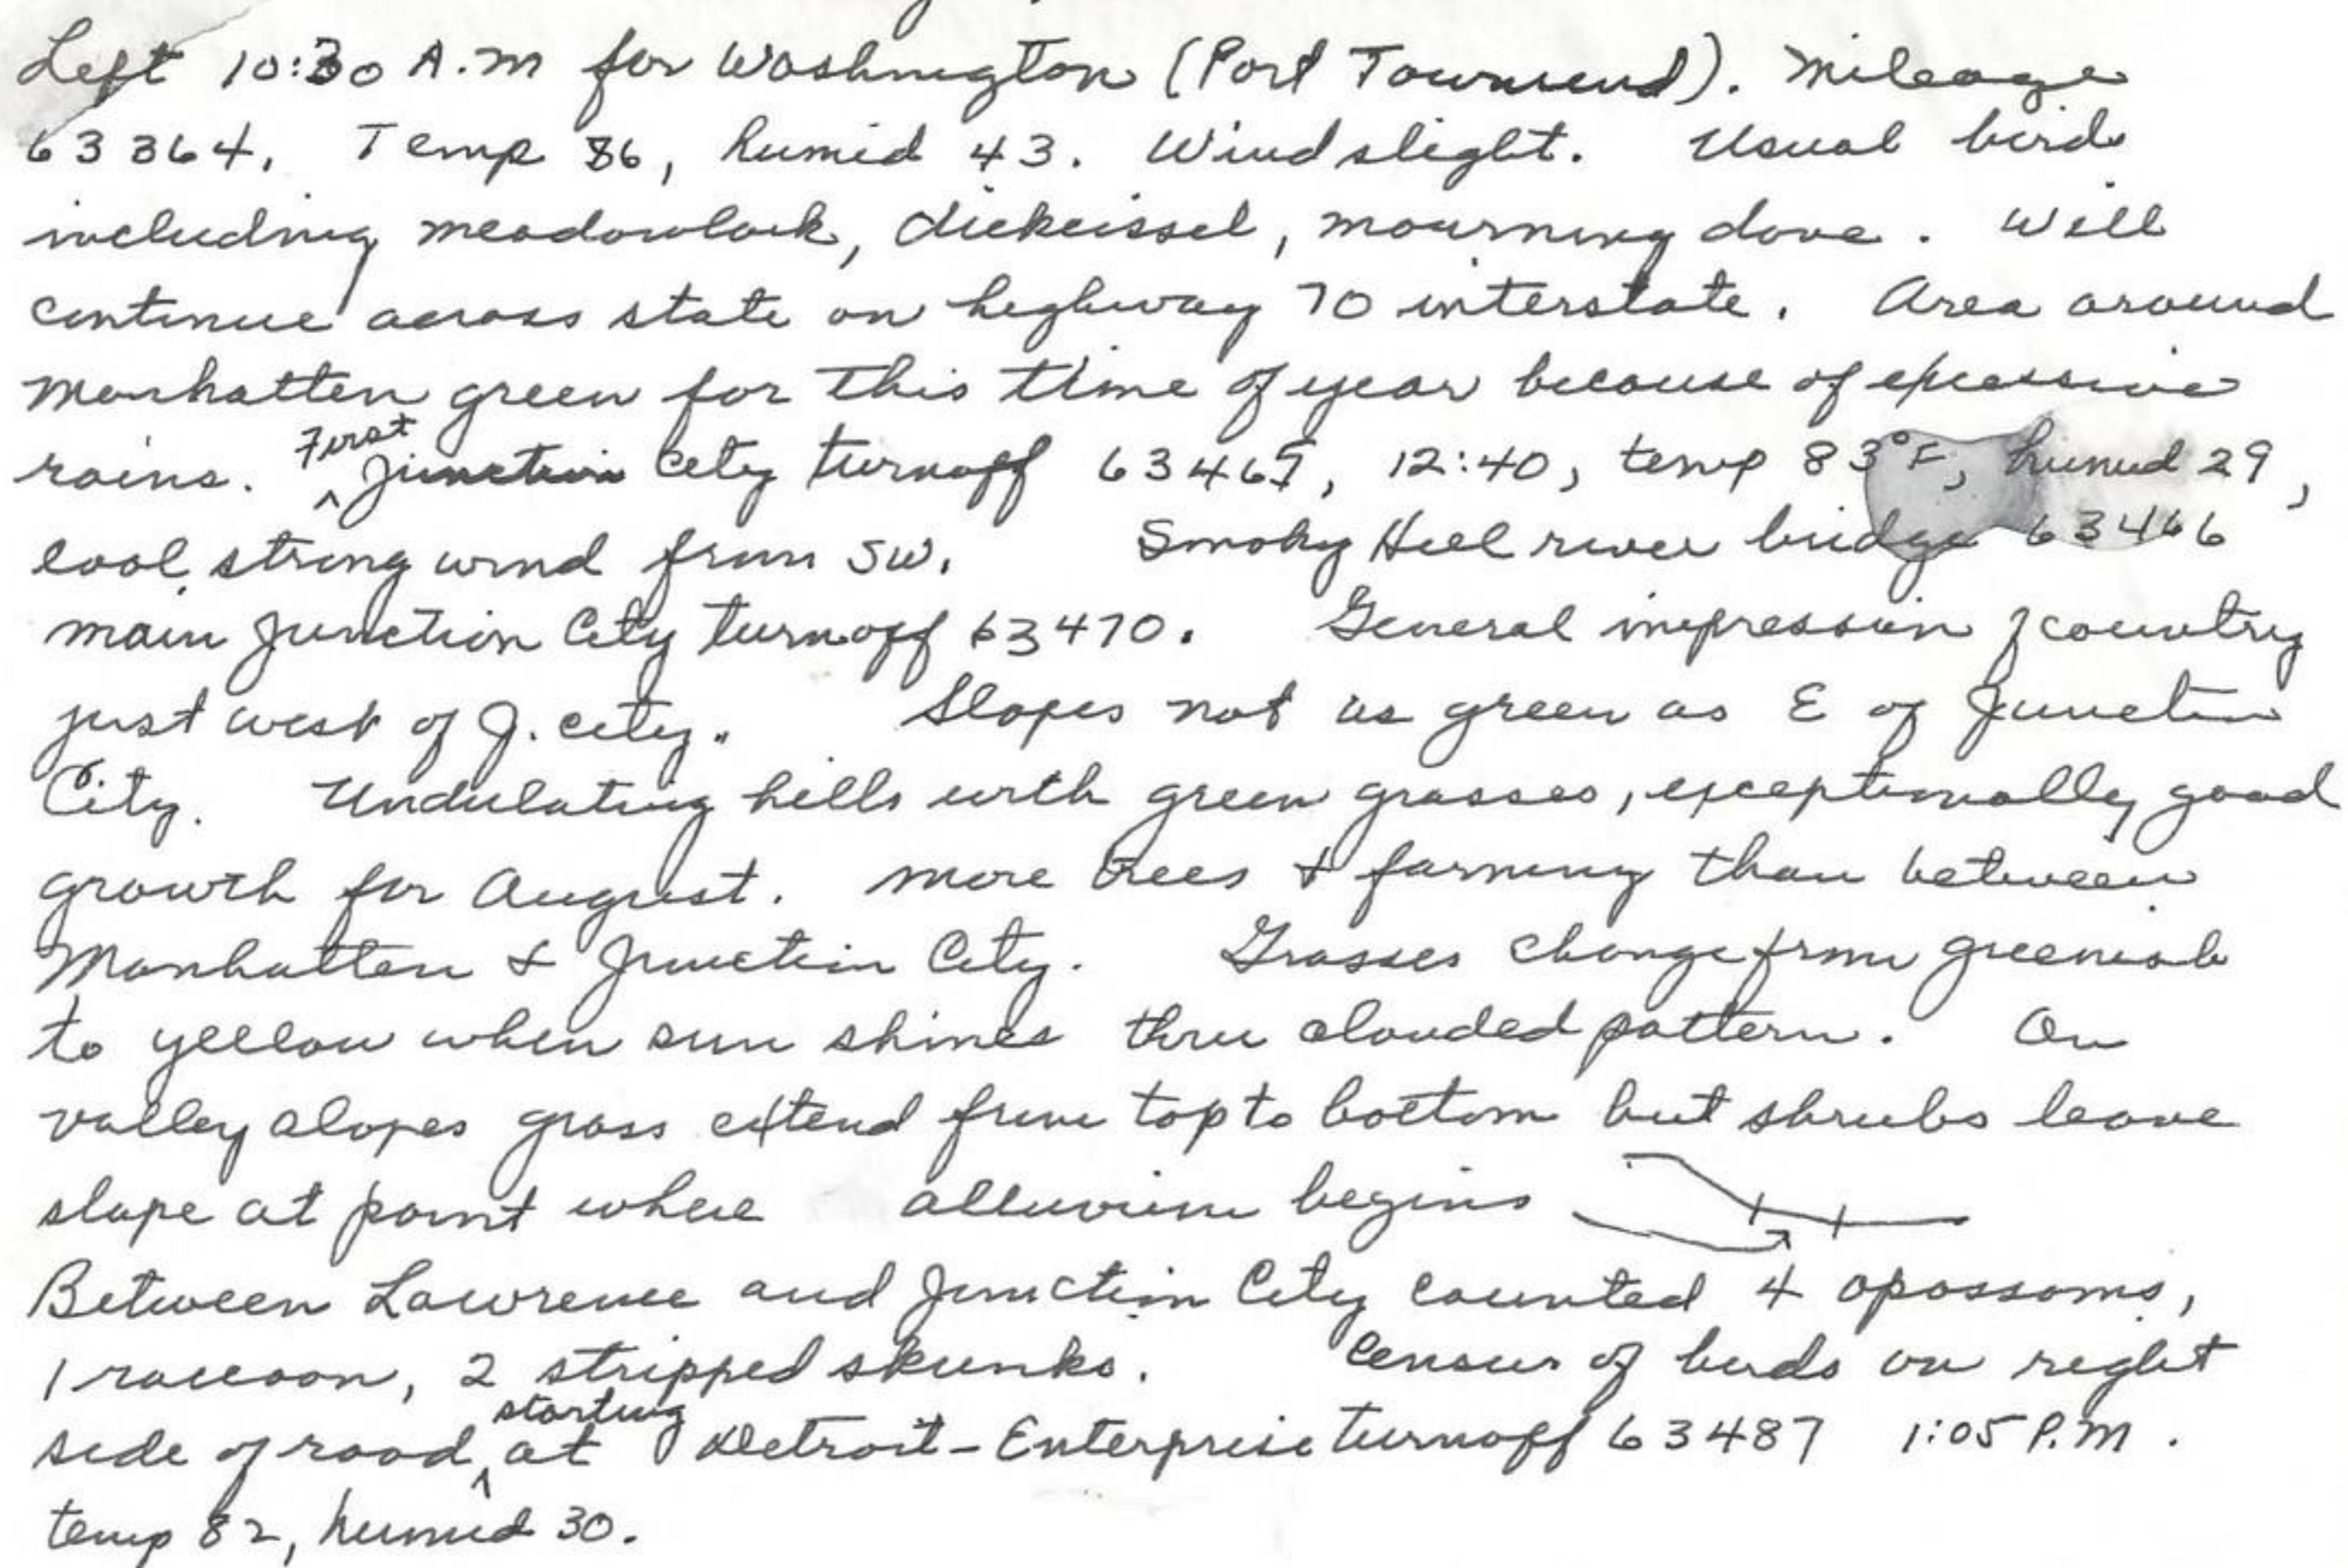 Left 10:30 A.M for Washington (Port Townsend). Mileage
63364, Temp 86, humid 43. Wind slight. Usual birds
including meadowlark, dickcissel, mourning dove. Will
continue across state on highway 70 interstate. Area around
Manhatten green for this time of year because of excessive
rains. First Junction City turnoff 63465, 12:40, temp 83°F, humid 29,
cool, strong wind from SW. Smoky Hill river bridge 63466
main Junction City turnoff 63470. General impression of country
just west of J. city. Slopes not as green as E of Junction
City. Undulating hills with green grasses, exceptionally good
growth for August. more trees & farming than between
Manhatten & Junction City. Grasses change from greenish
to yellow when sun shines thru clouded pattern. On
valley slopes grass extend from top to bottom but shrubs leave
slope at point where alluvium begins
Between Lawrence and Junction City counted 4 opossoms,
1 raccoon, 2 stripped skunks. Census of birds on right
side of road, starting at Detroit-Enterprise turnoff 63487 1:05 P.M.
temp 82, humid 30.